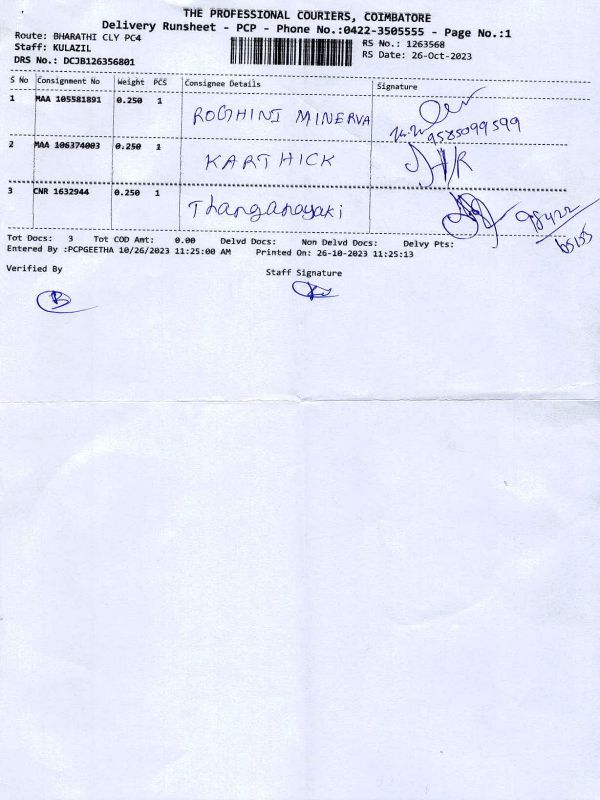 THE PROFESSIONAL COURIERS, COIMBATORE
Delivery Runsheet - PCP - Phone No.:0422-3505555 - Page No.:1
Route: BHARATHI CLY PC4
RS No.: 1263568
Staff: KULAZIL
RS Date: 26-Oct-2023
DRS No.: DCJB126356801
S No Consignment No Weight PCS Consignee Details Signature
1 MAA 105581891 0.250 1 ROGHINI MINERVA
9585099599
2 MAA 106374003 0.250 1 KARTHICK
3 CNR 1632944 0.250 1 Thanganayaki
98422
65155
Tot Docs: 3 Tot COD Amt: 0.00 Delvd Docs: Non Delvd Docs: Delvy Pts:
Entered By :PCPGEETHA 10/26/2023 11:25:00 AM Printed On: 26-10-2023 11:25:13
Verified By
Staff Signature